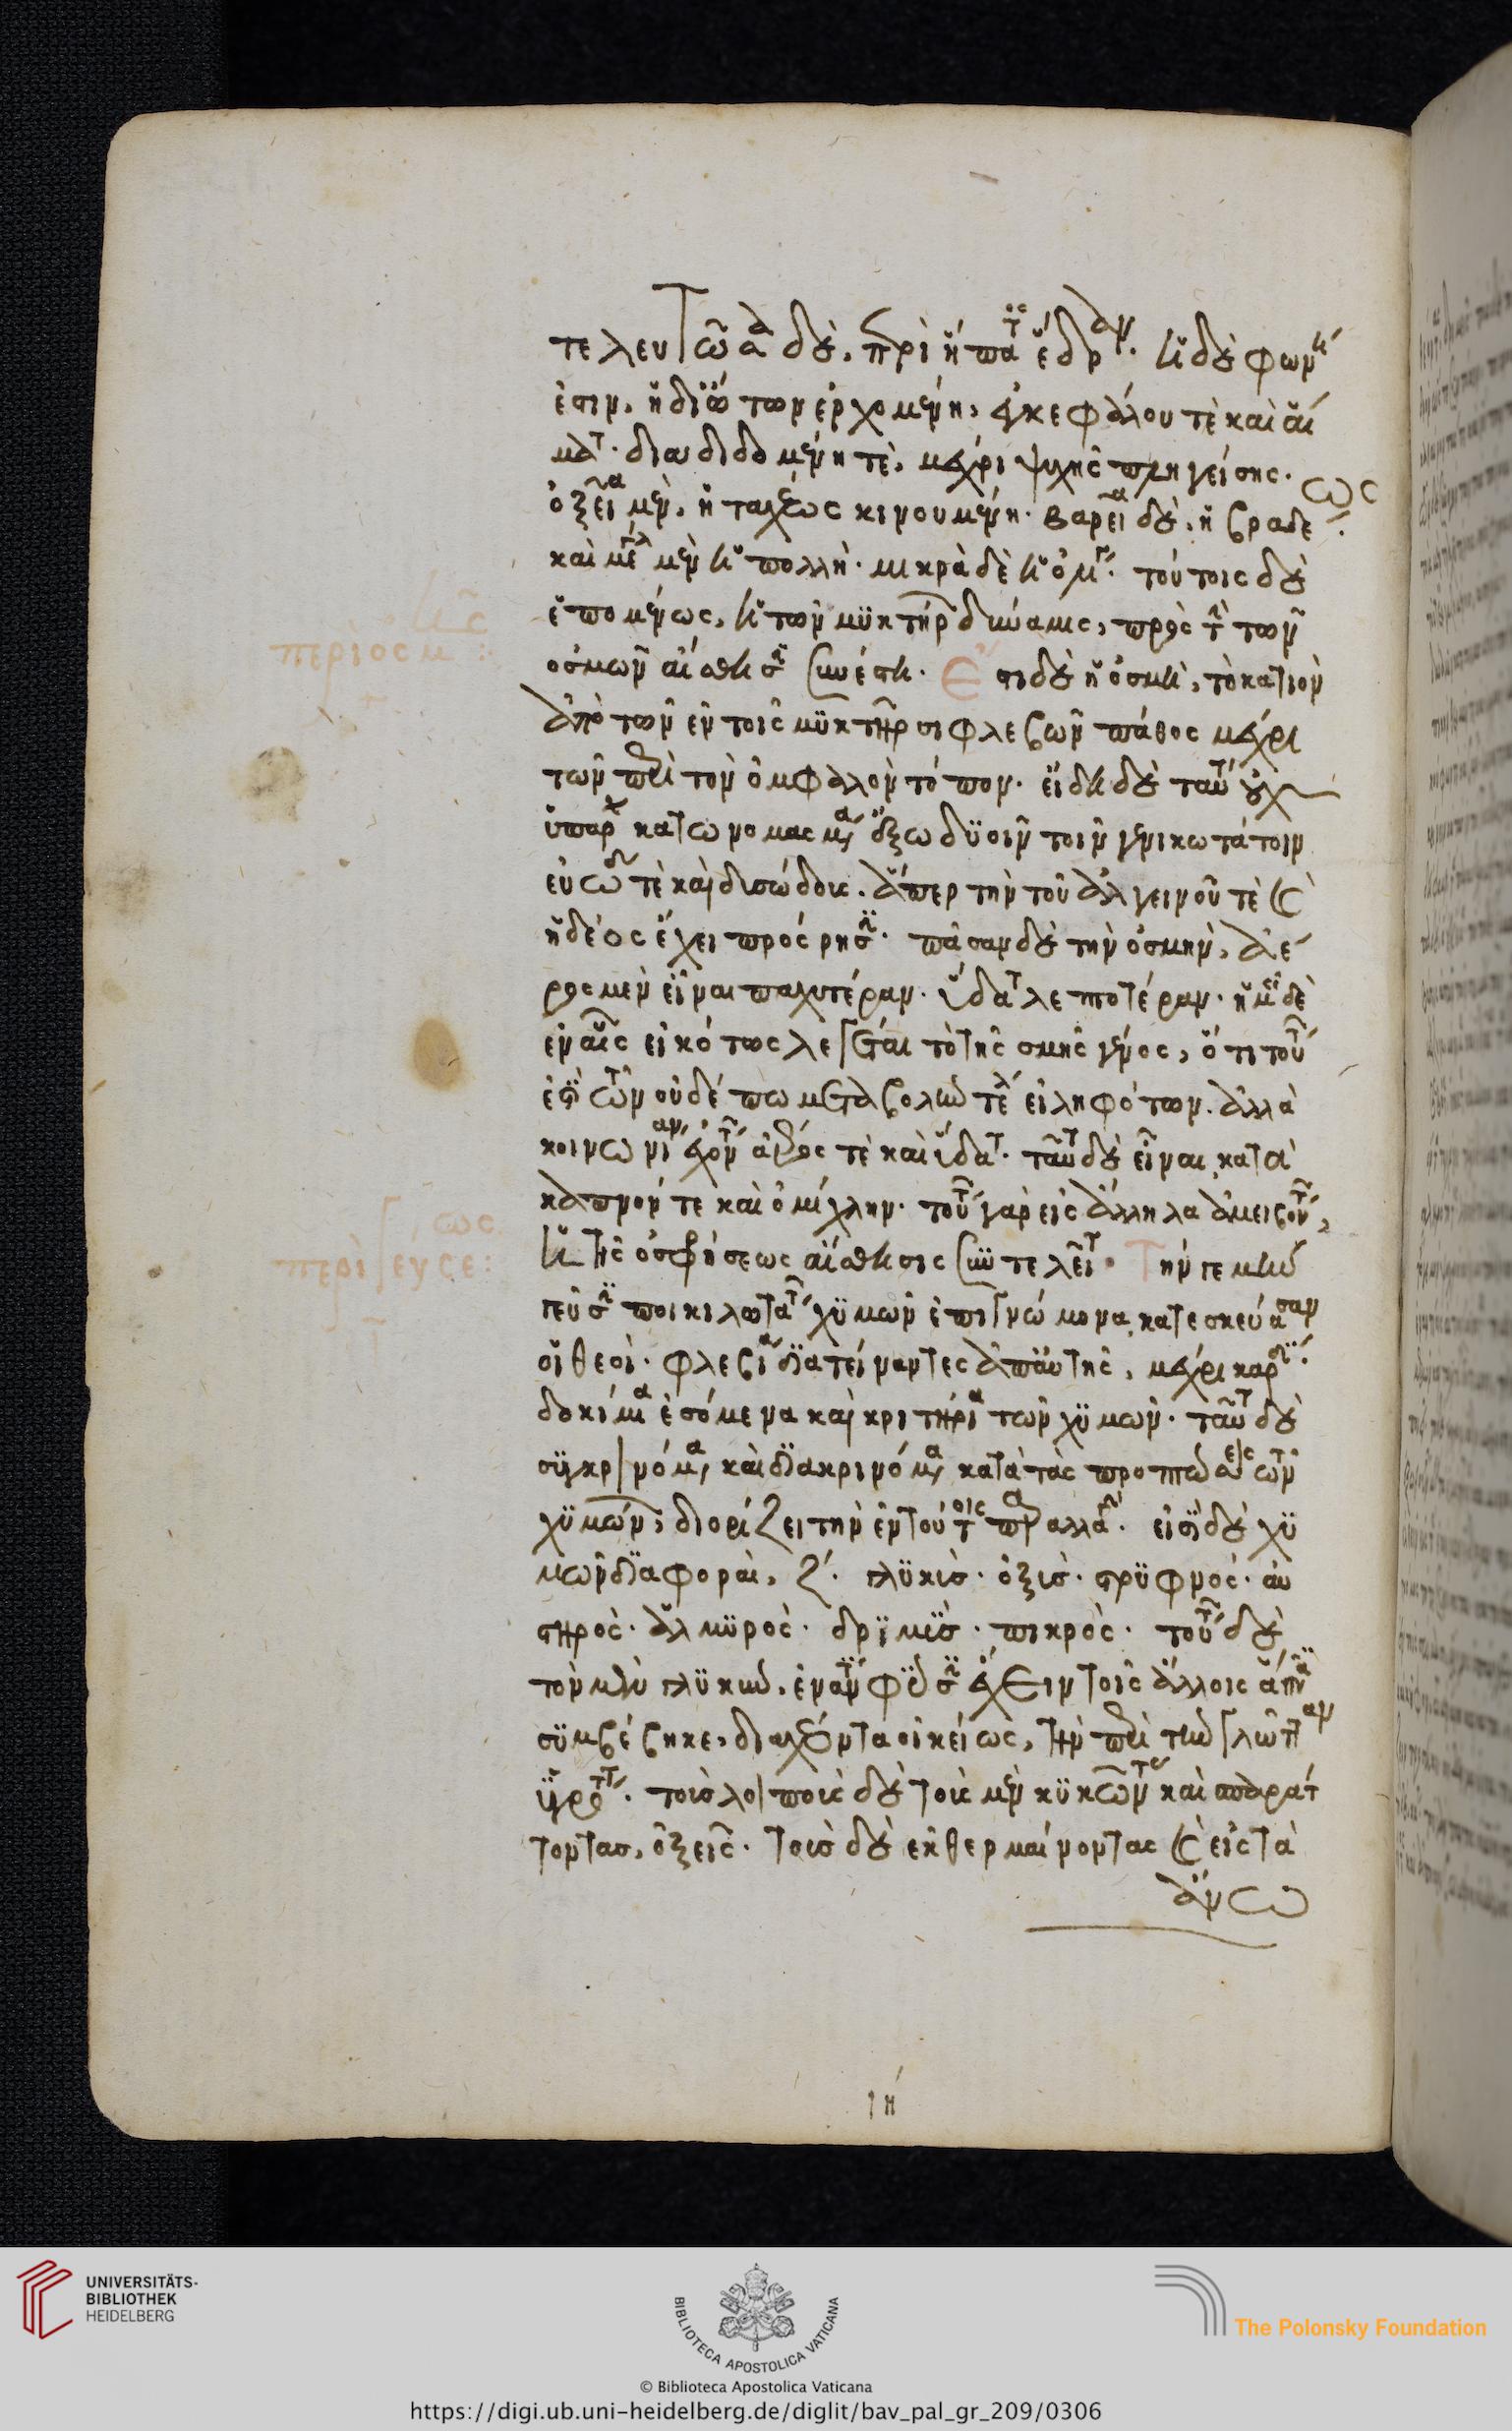 τελευτῶσα δὲ, περὶ ἥπατος ἕδραν. ἡ δὲ φωνή
ἐστιν, ἡ δι' ὤτων ἐρχομένη, ἐγκεφάλου τὲ καὶ αἵ
ματος. διαδιδομένη τὲ, μέχρι ψυχῆς πληγείσης.
ὀξεῖα μὲν, ἡ ταχέως κινουμένη. βαρεῖα δὲ, ἡ βραδέως.
καὶ μεγάλη μὲν ἡ πολλή. μικρὰ δὲ ἡ ὀλίγη. τούτοις δὲ
ἑπομένως, ἡ τῶν μυκτήρων δύναμις, πρὸς τὴν τῶν
ὀσμῶν αἴσθησιν συνέστη. Ἔστι δὲ ἡ ὀσμὴ, τὸ κατιὸν
περὶ ὀσμῆς:
ἀπὸ τῶν ἐν τοῖς μυκτῆρσι φλεβῶν πάθος μέχρι
τῶν περὶ τὸν ὀμφαλὸν τόπων. εἴδη δὲ ταύτης οὐχ
ὑπάρχει κατωνομασμένα ἔξω δυοῖν τοῖν γενικωτάτοιν
εὐωδίας τὲ καὶ δυσωδίας. ἅπερ τὴν τοῦ ἀλγεινοῦ τὲ καὶ
ἡδέος ἔχει πρόσρησιν. πᾶσαν δὲ τὴν ὀσμὴν, ἀέ
ρος μὲν εἶναι παχυτέραν. ὕδατος λεπτοτέραν.
εἰκότως λέγεται τὸ τῆς ὀσμῆς γένος, ὅτι
οὐδέπω μεταβολὴν τελείαν εἰληφότων. ἀλλὰ
κοινωνίαν ἐχόντων ἀέρος τὲ καὶ ὕδατος. ταῦτα δὲ εἶναι κατὰ
καπνόν τε καὶ ὀμίχλην. τούτων γὰρ εἰς ἄλληλα ἀμειβόντων,
ἡ τῆς ὀσφρήσεως αἴσθησις συντελεῖται. Τὴν γε μὴν
περὶ γεύσεως:
γεῦσιν ποικιλωτάτων χυμῶν ἐπιγνώμονα κατεσκεύασαν
οἱ θεοὶ. φλεβία διατείναντες ἀπ' αὐτῆς, μέχρι καρδίας.
δοκίμια ἐσόμενα καὶ κριτήρια τῶν χυμῶν. ταῦτα δὲ
συγκρινόμενα, καὶ διακρινόμενα κατὰ τὰς προσπτώσεις τῶν
χυμῶν, διορίζει τὴν ἐν τούτοις παραλλαγήν. εἰσὶ δὲ χυ
μῶν διαφοραὶ, ζ'. γλυκὺς. ὀξὺς. στρυφνός. αὐ
στηρός. ἁλμυρός. δριμὺς. πικρός. τούτων δὲ
τὸν μὲν γλυκὺν, ἐναντίαν φύσιν ἔχειν τοῖς ἄλλοις ἅπασι
συμβέβηκε, διαχέοντα οἰκείως, τὴν περὶ τὴν γλῶτταν
ὑγρότητα. τοὺς λοιποὺς δὲ τοὺς μὲν κυκῶντας καὶ σπαράτ
τοντας, ὀξεῖς. τοὺς δὲ ἐκθερμαίνοντας καὶ εἰς τὰ
ἄνω
ιη
UNIVERSITÄTS-
BIBLIOTHEK
HEIDELBERG
BIBLIOTECA APOSTOLICA VATICANA
The Polonsky Foundation
© Biblioteca Apostolica Vaticana
https://digi.ub.uni-heidelberg.de/diglit/bav_pal_gr_209/0306